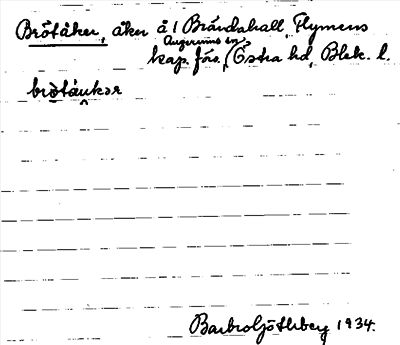 Brötåker, åker å 1 Brändahall, Flymens
Augerums sn
kap. förs. (Östra hd, Blek. l.
brø̀táukər
Barbro Götlberg 1934.